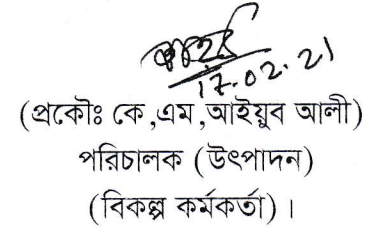 17.02.21
(প্রকৌঃ কে,এম,আইয়ুব আলী)
পরিচালক (উৎপাদন)
(বিকল্প কর্মকর্তা)।